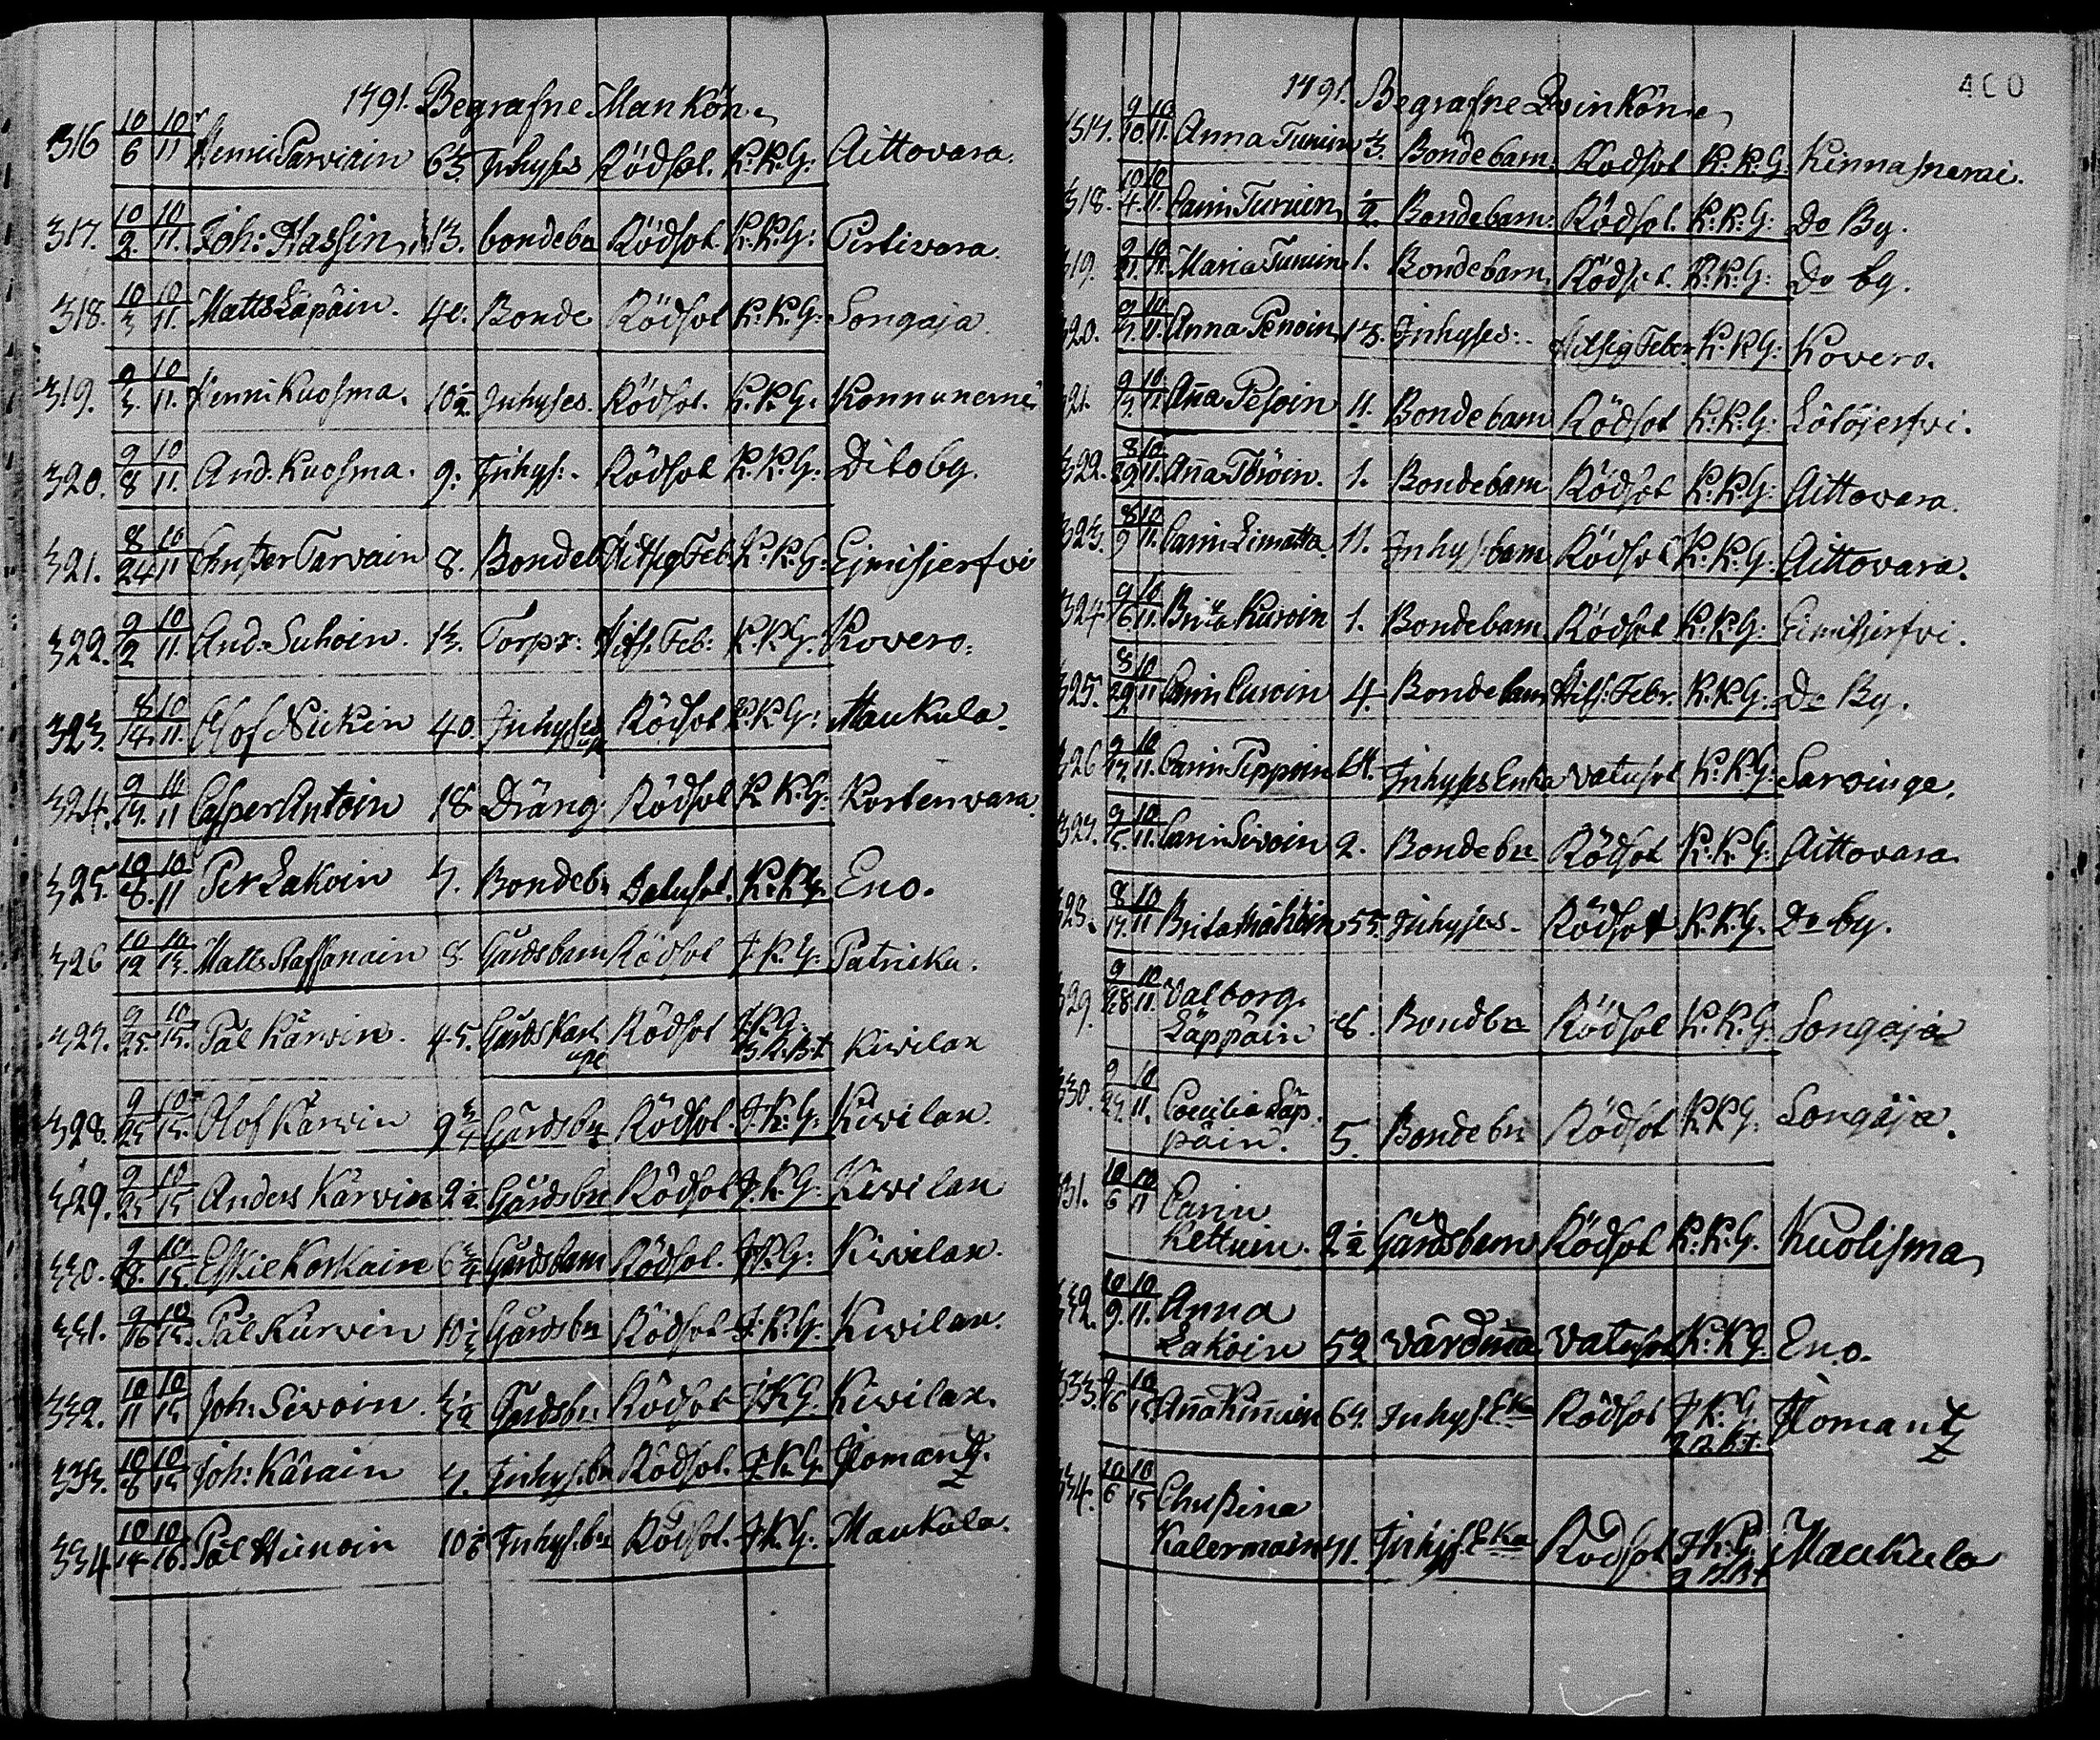 1791. Begrafne Mankön
316 10/6 10/11 Henric Parviain 63. Inhyses Rödsot. K.K.G: Aittovara.
317. 10/2. 10/11. Joh: Hassin, 13. bondebn Rödsot K.K.G: Pertivara.
318. 10/3 10/11. Matts Lapäin. 40. Bonde Rödsot K.K.G: Songaja.
319. 9/3. 10/11. Henric Kuosma. 10 1/2. Inhyses. Rödsot. K.K.G. Konnunemi
320. 9/8 10/11. And. Kuosma. 9. Inhys:. Rödsot K.K.G: Ditoby.
321. 8/24 10/11 Christer Tarvain 8. Bondeb Hitsig Feb. K.K.G: Ejmisjerfvi
322. 9/2 10/11. And. Suhoin. 13. Torpr: Hits. Feb: K.K.G. Kovero.
323. 8/14. 10/11. Olof Nickin 40. Inhyses Rödsot K.K.G: Maukula.
324. 9/19. 10/11 Casper Antoin 18. Dräng Rödsot K.K.G: Kortenvara.
325. 10/8. 10/11 Per Lakoin 7. Bondebn K.K.G. Eno.
326 10/12 10/15. Matts 8. Gårdsbarn Rödsot I.K.G: Patricka.
327. 9/25. 10/15. Pål Kärvin. 45. Gårds Karl Rödsot I.K.G. Kivilax
328. 9/25 10/15. Olof Kärvin 9 3/4 Gårdsbn Rödsot. I.K.G. Kivilax.
329. 9/25 10/15 Anders Kärvin 2 1/2 Gårdsbn Rödsot I.K.G: Kivilax
330. 9/18. 10/15 Eskil Koskain 6 3/4 Gårdsbarn Rödsot. I.K.G: Kivilax.
331. 9/16 10/15. Pål Kärvin 10 1/2 Gårdsbn Rödsot I.K.G. Kivilax.
332. 10/11 10/15 Joh: Sivoin. Gårdsbn. Rödsot I.K.G. Kivilax.
333. 10/8 10/15 Joh: Kärain 7. Inhys.bn Rödsot. I.K.G. Ilomantz.
334 10/14 10/16. Pål Hirvoin Inhys.bn Rödsot. I.K.G: Maukula.
400
1791. Begrafne Qvinköne
317. 9/10. 10/11. Anna Turuin 3. Bondebarn. Rödsot K.K.G: Kinnasnemi.
318. 10/4. 10/11. Carin Turuin, 1/2. Bondebarn. Rödsot. K.K.G: Do By.
319. 9/21. 10/11. Maria Turuin 1. Bondebarn. Rödsot. K.K.G: Do by.
320. 9/7. 10/11. Anna Penoin 13. Inhyses:. Hitsig Feber K.K.G: Kovero.
321. 9/7. 10/11. Aña Pesoin 11. Bondebarn Rödsot K.K.G: Lötöjerfvi.
322. 8/29 10/11. Aña 1. Bondebarn Rödsot K.K.G: Aittovara.
323. 8/9 10/11. Carin Limatta. 11. Inhys barn Rödsot K.K.G: Aittovara.
324 9/6. 10/11. Brita Kuroin 1. Bondebarn Rödsot K.K.G: Eimisjerfvi.
325. 8/29 10/11 Carin Curoin 4. Bondebarn Hits. Febr. K.K.G: Do By.
326 9/17. 10/11. Carin Pippoin Inhyses Enka Vatusot K.K.G: Sarvinge.
327. 9/5. 10/11. Carin Sivoin 2. Bondebn Rödsot K.K.G: Aittovara.
328. 8/17. 10/11 Brita 55. Inhyses. Rödsot K.K.G. Do by.
329. 9/28 10/11. Valborg.
Läppäin 8. Bondbn Rödsot K.K.G: Songaja
330. 9/27. 10/11. Cæcilia Läp
päin. 5. Bondebn Rödsot K.K.G. Songaja.
331. 10/6 10/11 Carin
Kettuin. 2 1/2 Gårdsbarn Rödsot K.K.G. Kuolisma
332. 10/9 10/11. Anna
Lakoin 52 Vatusot K.K.G. Eno.
333. 9/16 10/15 Aña Kiñuin 67. Inhys. Eka Rödsot I.K.G. Ilomantz
334. 10/6 10/15 Christina
Kalermain 71. Inhys. Eka Rödsot I.K.G. Maukula